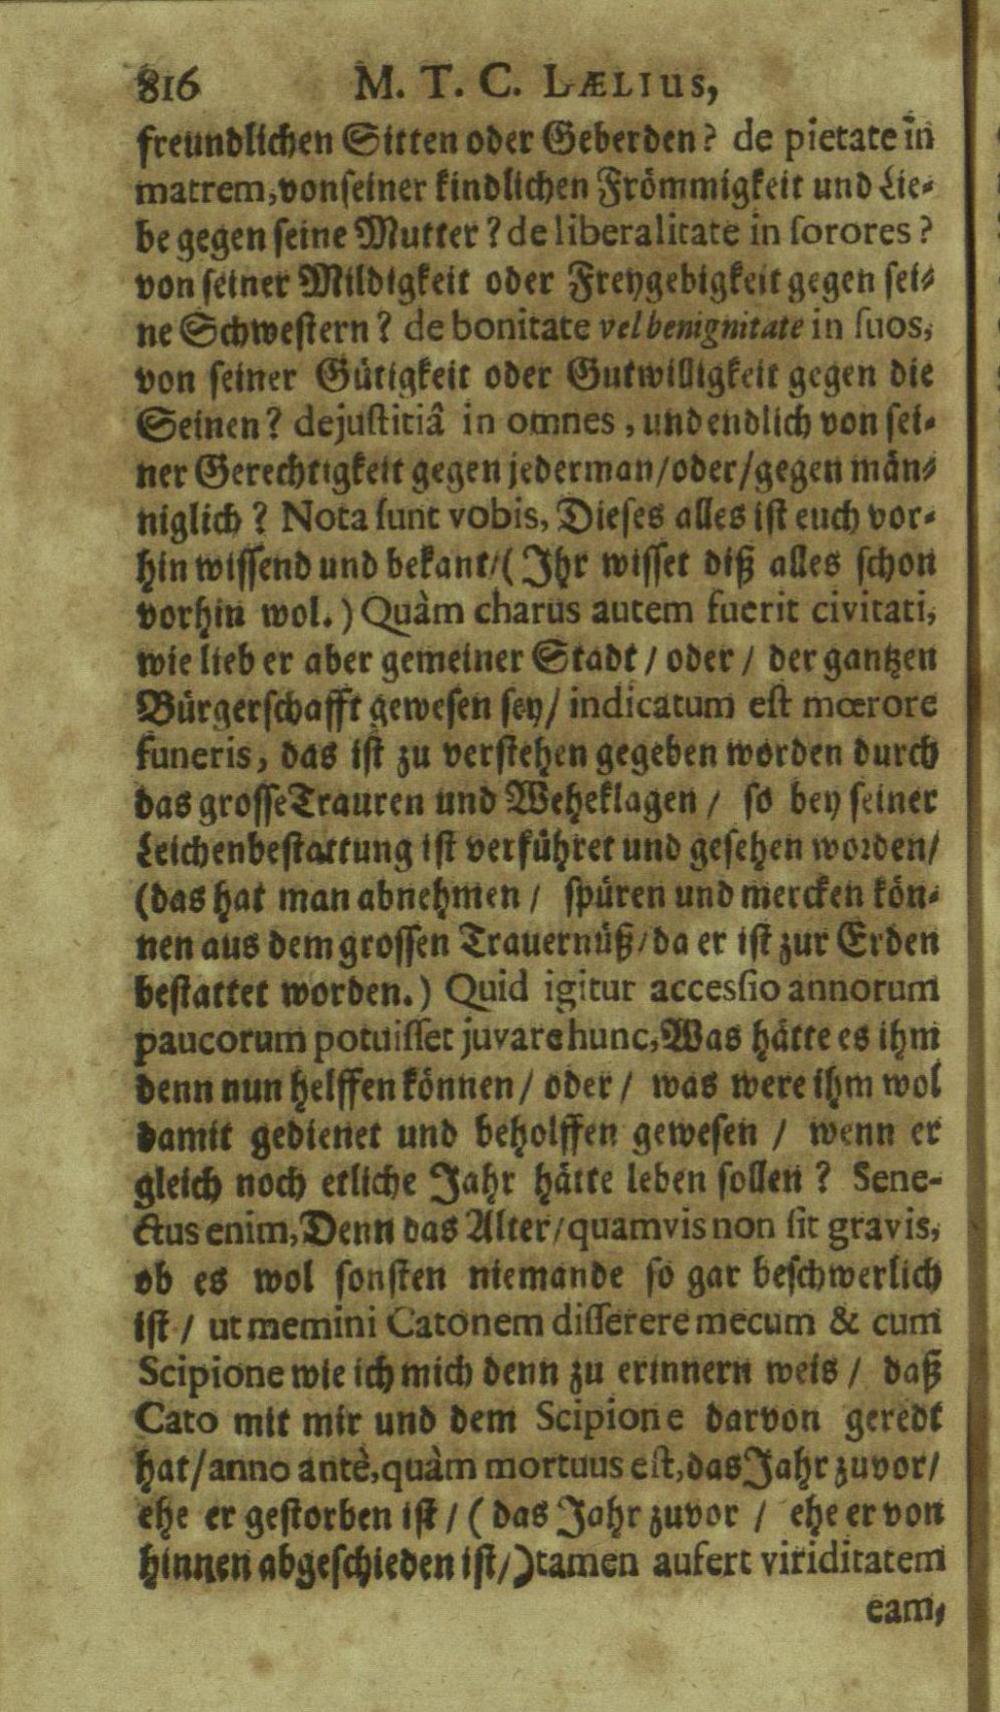 816 M. T. C. LÆLIUS,
freundlichen Sitten oder Geberden? de pietate in
matrem, von seiner kindlichen Frömmigkeit und Lie-
be gegen seine Mutter? de liberalitate in sorores?
von seiner Mildigkeit oder Freygebigkeit gegen sei-
ne Schwestern? de bonitate vel benignitate in suos,
von seiner Gütigkeit oder Gutwilligkeit gegen die
Seinen? de justitiâ in omnes, und endlich von sei-
ner Gerechtigkeit gegen jederman/oder/gegen män-
niglich? Nota sunt vobis, Dieses alles ist euch vor-
hin wissend und bekant/(Ihr wisset diß alles schon
vorhin wol.) Quàm charus autem fuerit civitati,
wie lieb er aber gemeiner Stadt/oder/der gantzen
Bürgerschafft gewesen sey/indicatum est mœrore
funeris, das ist zu verstehen gegeben worden durch
das grosse Trauren und Weheklagen/ so bey seiner
Leichenbestattung ist verführet und gesehen worden/
(das hat man abnehmen/ spüren und mercken kön-
nen aus dem grossen Trauernüß/da er ist zur Erden
bestattet worden.) Quid igitur accessio annorum
paucorum potuisset juvare hunc, Was hätte es ihm
denn nun helffen können/ oder/ was were ihm wol
damit gedienet und beholffen gewesen/ wenn er
gleich noch etliche Jahr hätte leben sollen? Sene-
ctus enim, Denn das Alter/quamvis non sit gravis,
ob es wol sonsten niemande so gar beschwerlich
ist/ ut memini Catonem disserere mecum & cum
Scipione wie ich mich denn zu erinnern weis/ daß
Cato mit mir und dem Scipione darvon geredt
hat/anno antè, quàm mortuus est, das Jahr zuvor/
ehe er gestorben ist/(das Jahr zuvor/ ehe er von
hinnen abgeschieden ist/) tamen aufert viriditatem
eam,